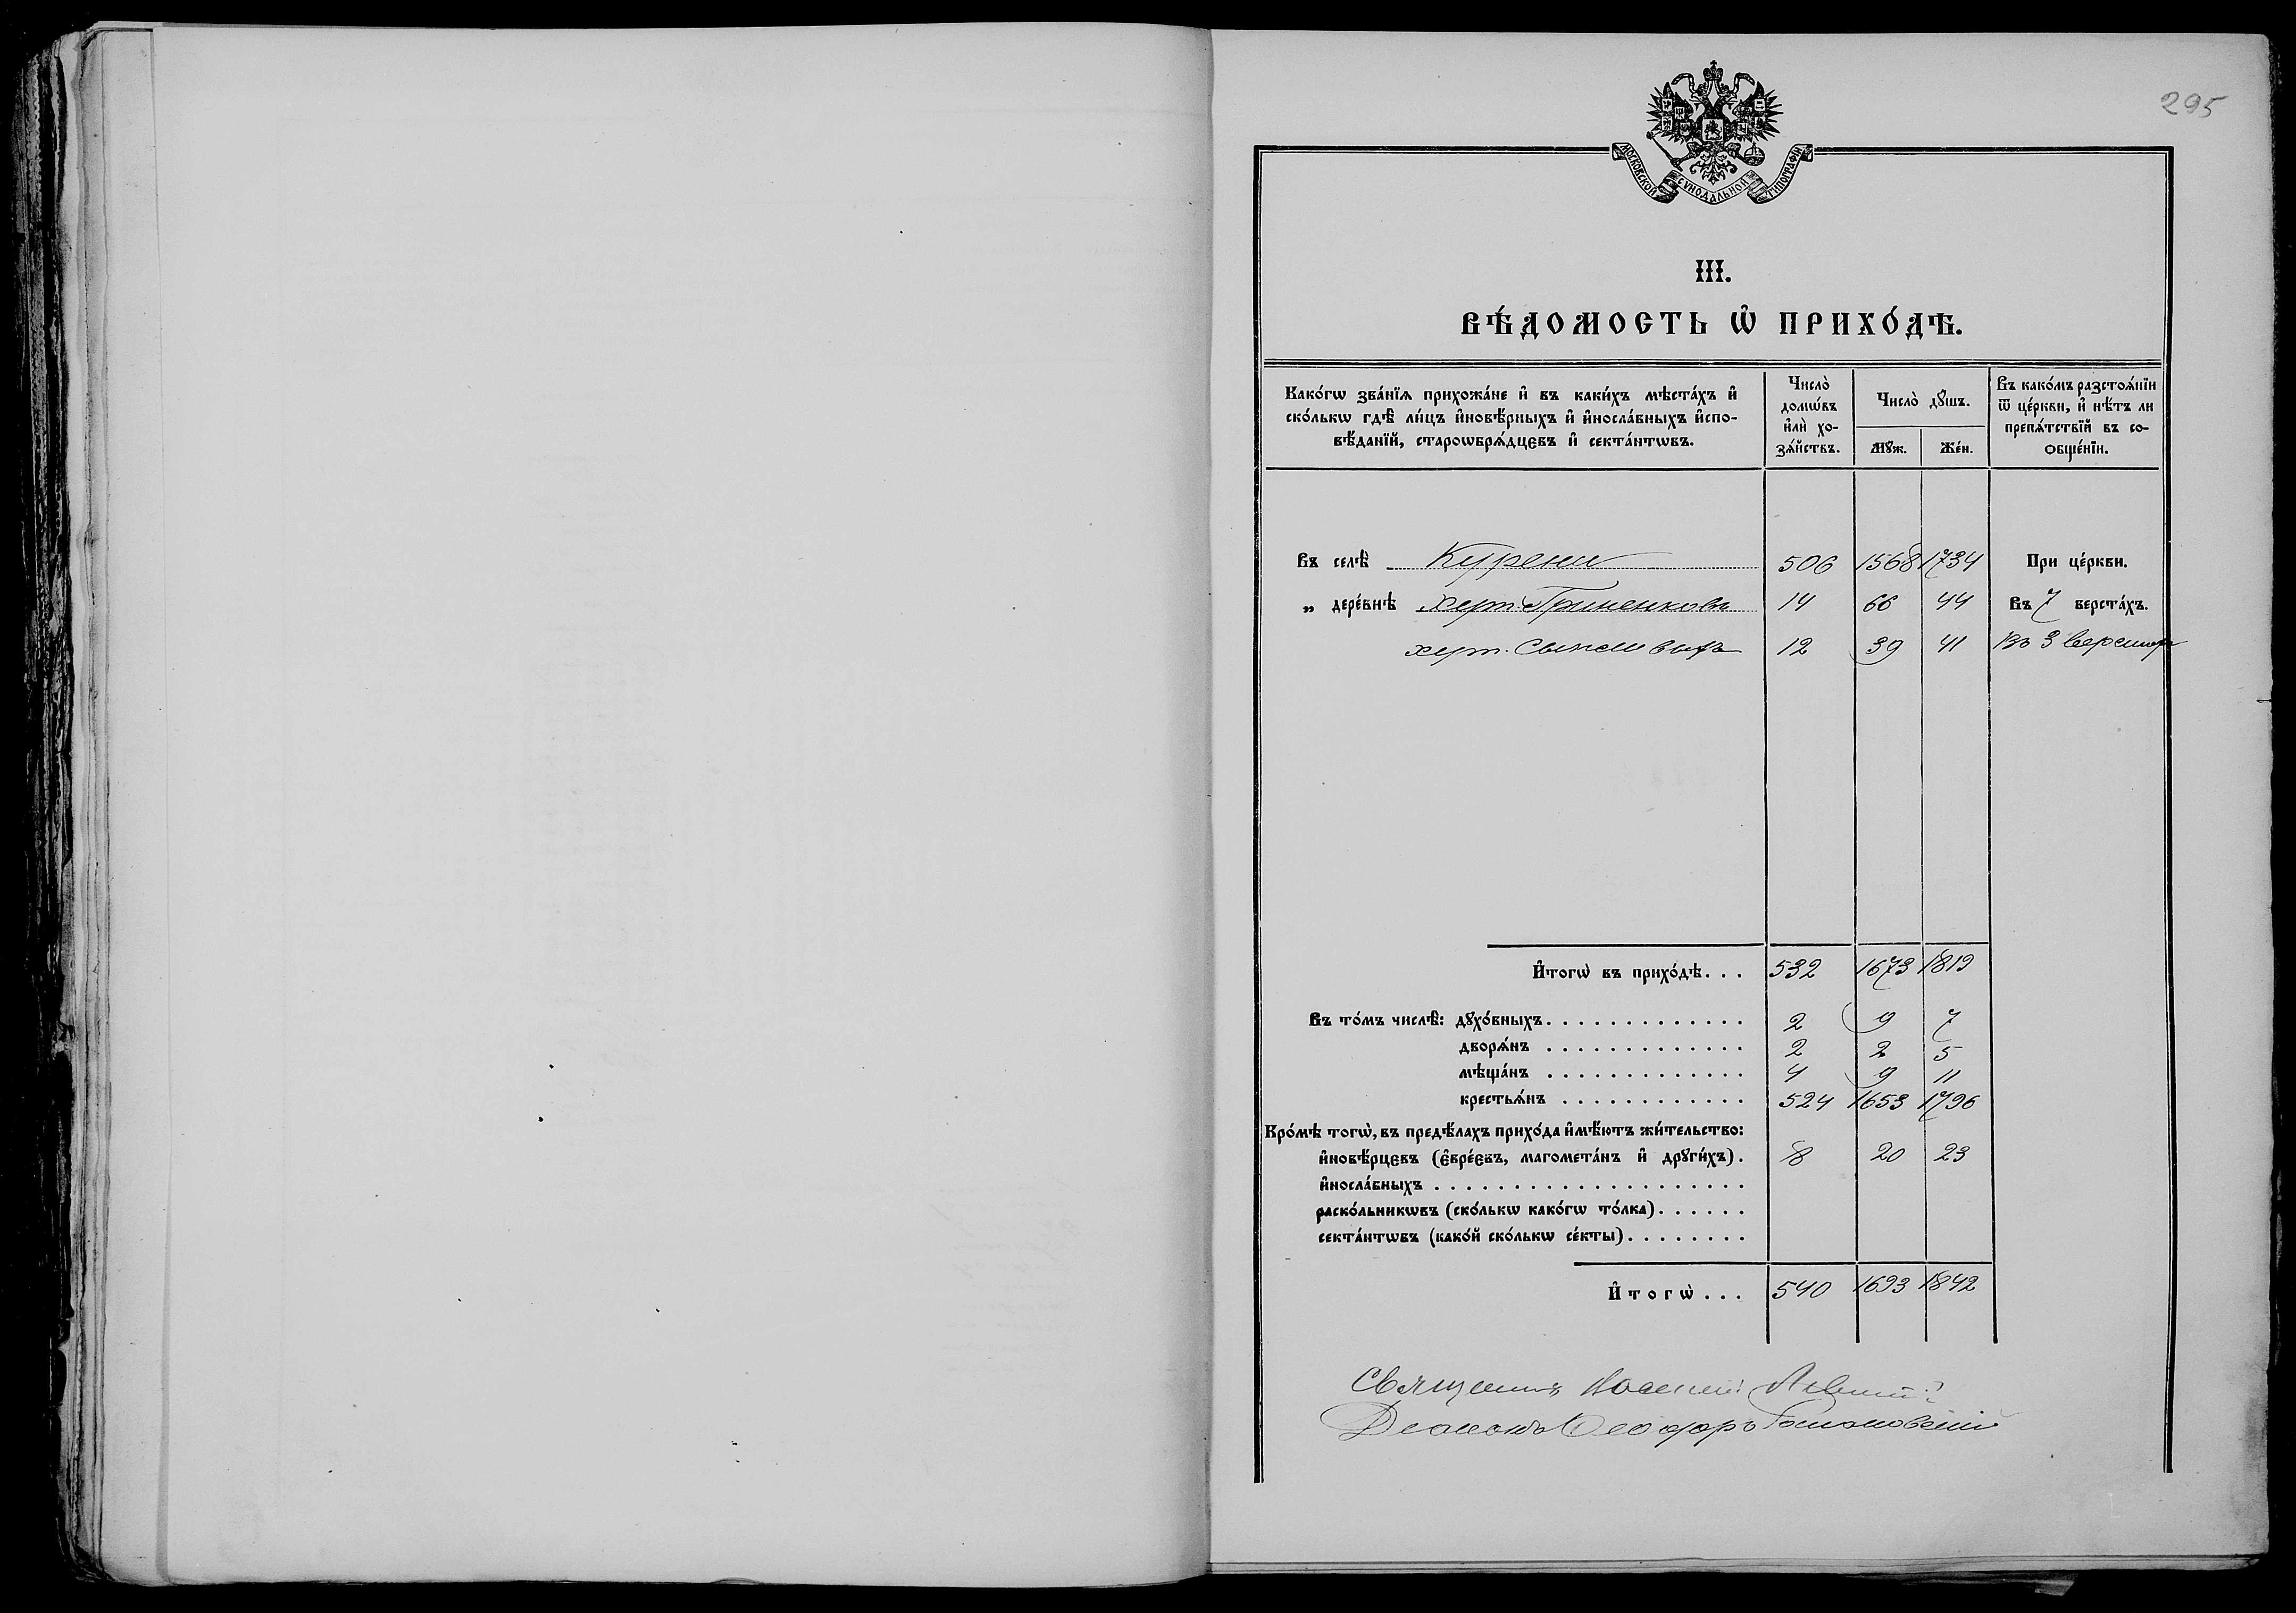 295
МОСКОВСКОЙ СѴНОДАЛЬНОЙ ТИПОГРАФІИ
III.
ВѢ́ДОМОСТЬ Ѡ҆ ПРИХО́ДѢ.
Како́гѡ зва́нїѧ прихожа́не и҆ въ каки́хъ мѣста́хъ и҆
ско́лькѡ гдѣ̀ ли́цъ и҆новѣ́рныхъ и҆ и҆носла́вныхъ и҆спо-
вѣ́данїй, староѡбрѧ́дцєвъ и҆ секта́нтѡвъ.
Число̀
домѡ́въ
и҆лѝ хо-
зѧ́йствъ.
Число̀ дꙋ́шъ.
Мꙋ́ж.
Же́н.
Въ како́мъ разстоѧ́нїи
ѿ це́ркви, и҆ нѣ́тъ ли
препѧ́тствїй въ со-
ѻбще́нїи.
Въ селѣ̀ Курени 506 1568 1734 При це́ркви.
„ дере́внѣ хут. Гриненковъ 14 66 44 Въ 7 верста́хъ.
хут. 12 39 41 Въ 3 верстах
И҆тогѡ̀ въ прихо́дѣ... 532 1673 1819
Въ то́мъ числѣ̀: дꙋхо́вныхъ. 2 9 7
дворѧ́нъ 2 2 5
мѣща́нъ 4 9 11
крестьѧ́нъ 524 1653 1796
Кро́мѣ тогѡ̀, въ предѣ́лахъ прихо́да и҆мѣ́ютъ жи́тельство:
и҆новѣ́рцєвъ (є҆вре́євъ, магомета́нъ и҆ дрꙋги́хъ). 8 20 23
и҆носла́вныхъ
раско́льникѡвъ (ско́лькѡ како́гѡ то́лка).
секта́нтѡвъ (како́й ско́лькѡ се́кты).
И҆тогѡ̀... 540 1693 1842
Священникъ
Діаконъ Ѳеодоръ